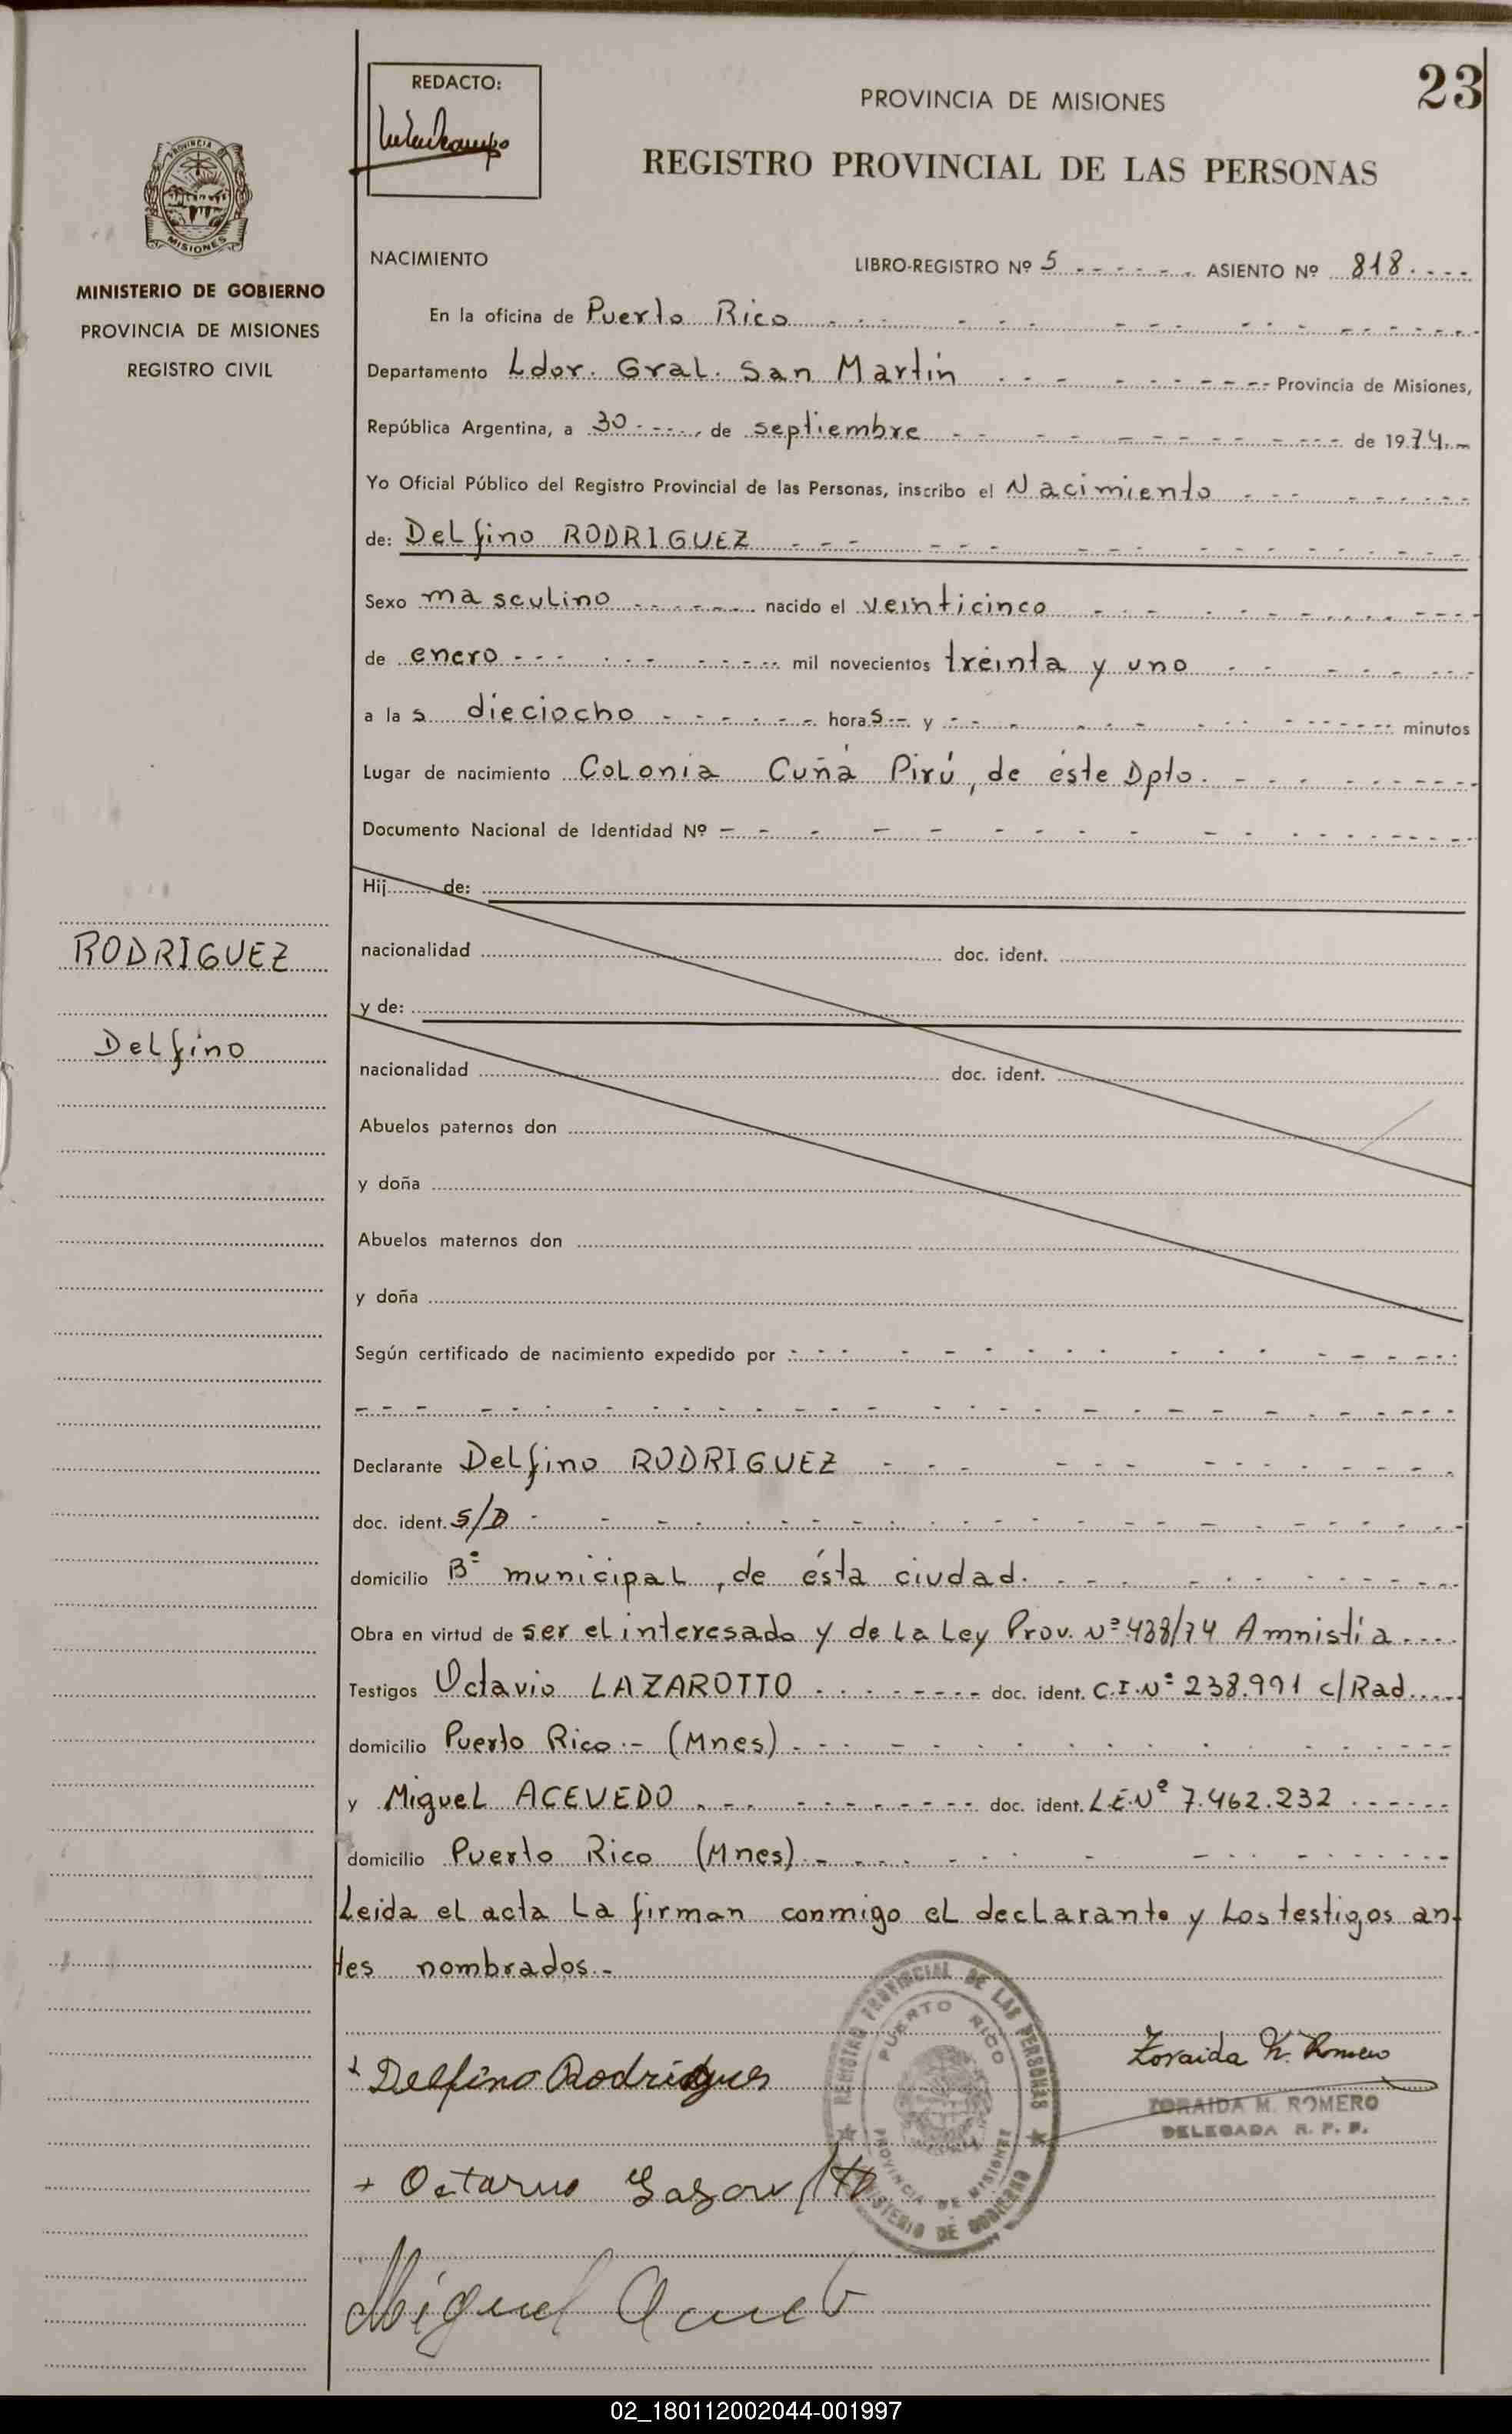 23
REDACTO:
PROVINCIA DE MISIONES
REGISTRO PROVINCIAL DE LAS PERSONAS
PROVINCIA DE
MISIONES
MINISTERIO DE GOBIERNO
PROVINCIA DE MISIONES
REGISTRO CIVIL
NACIMIENTO LIBRO-REGISTRO Nº 5 ASIENTO Nº 818.
En la oficina de Puerto Rico
Departamento Ldor. Gral. San Martin Provincia de Misiones,
República Argentina, a 30 de septiembre de 1974
Yo Oficial Público del Registro Provincial de las Personas, inscribo el Nacimiento
de: Delfino RODRIGUEZ
Sexo masculino nacido el veinticinco
de enero mil novecientos treinta y uno
a las dieciocho horas y minutos
Lugar de nacimiento Colonia Cuñá Pirú, de éste Dpto.
Documento Nacional de Identidad Nº
Hij de:
nacionalidad doc. ident.
y de:
nacionalidad doc. ident.
Abuelos paternos don
y doña
Abuelos maternos don
y doña
RODRIGUEZ
Delfino
Según certificado de nacimiento expedido por
Declarante Delfino RODRIGUEZ
doc. ident. S/D
domicilio Bº municipal, de ésta ciudad.
Obra en virtud de ser el interesado y de la Ley Prov. Nº 438/74 Amnistía
Testigos Octavio LAZAROTTO doc. ident. C.I.Nº 238.991 c/Rad.
domicilio Puerto Rico.- (Mnes)
y Miguel ACEVEDO doc. ident. L.E.Nº 7.462.232
domicilio Puerto Rico (Mnes)
Leida el acta la firman conmigo el declarante y los testigos an-
tes nombrados.-
REGISTRO PROVINCIAL DE LAS PERSONAS
PUERTO RICO
PROVINCIA DE MISIONES
MINISTERIO DE GOBIERNO
Delfino Rodrigues
Zoraida M. Romero
ZORAIDA M. ROMERO
DELEGADA R. P. P.
Miguel
02_180112002044-001997